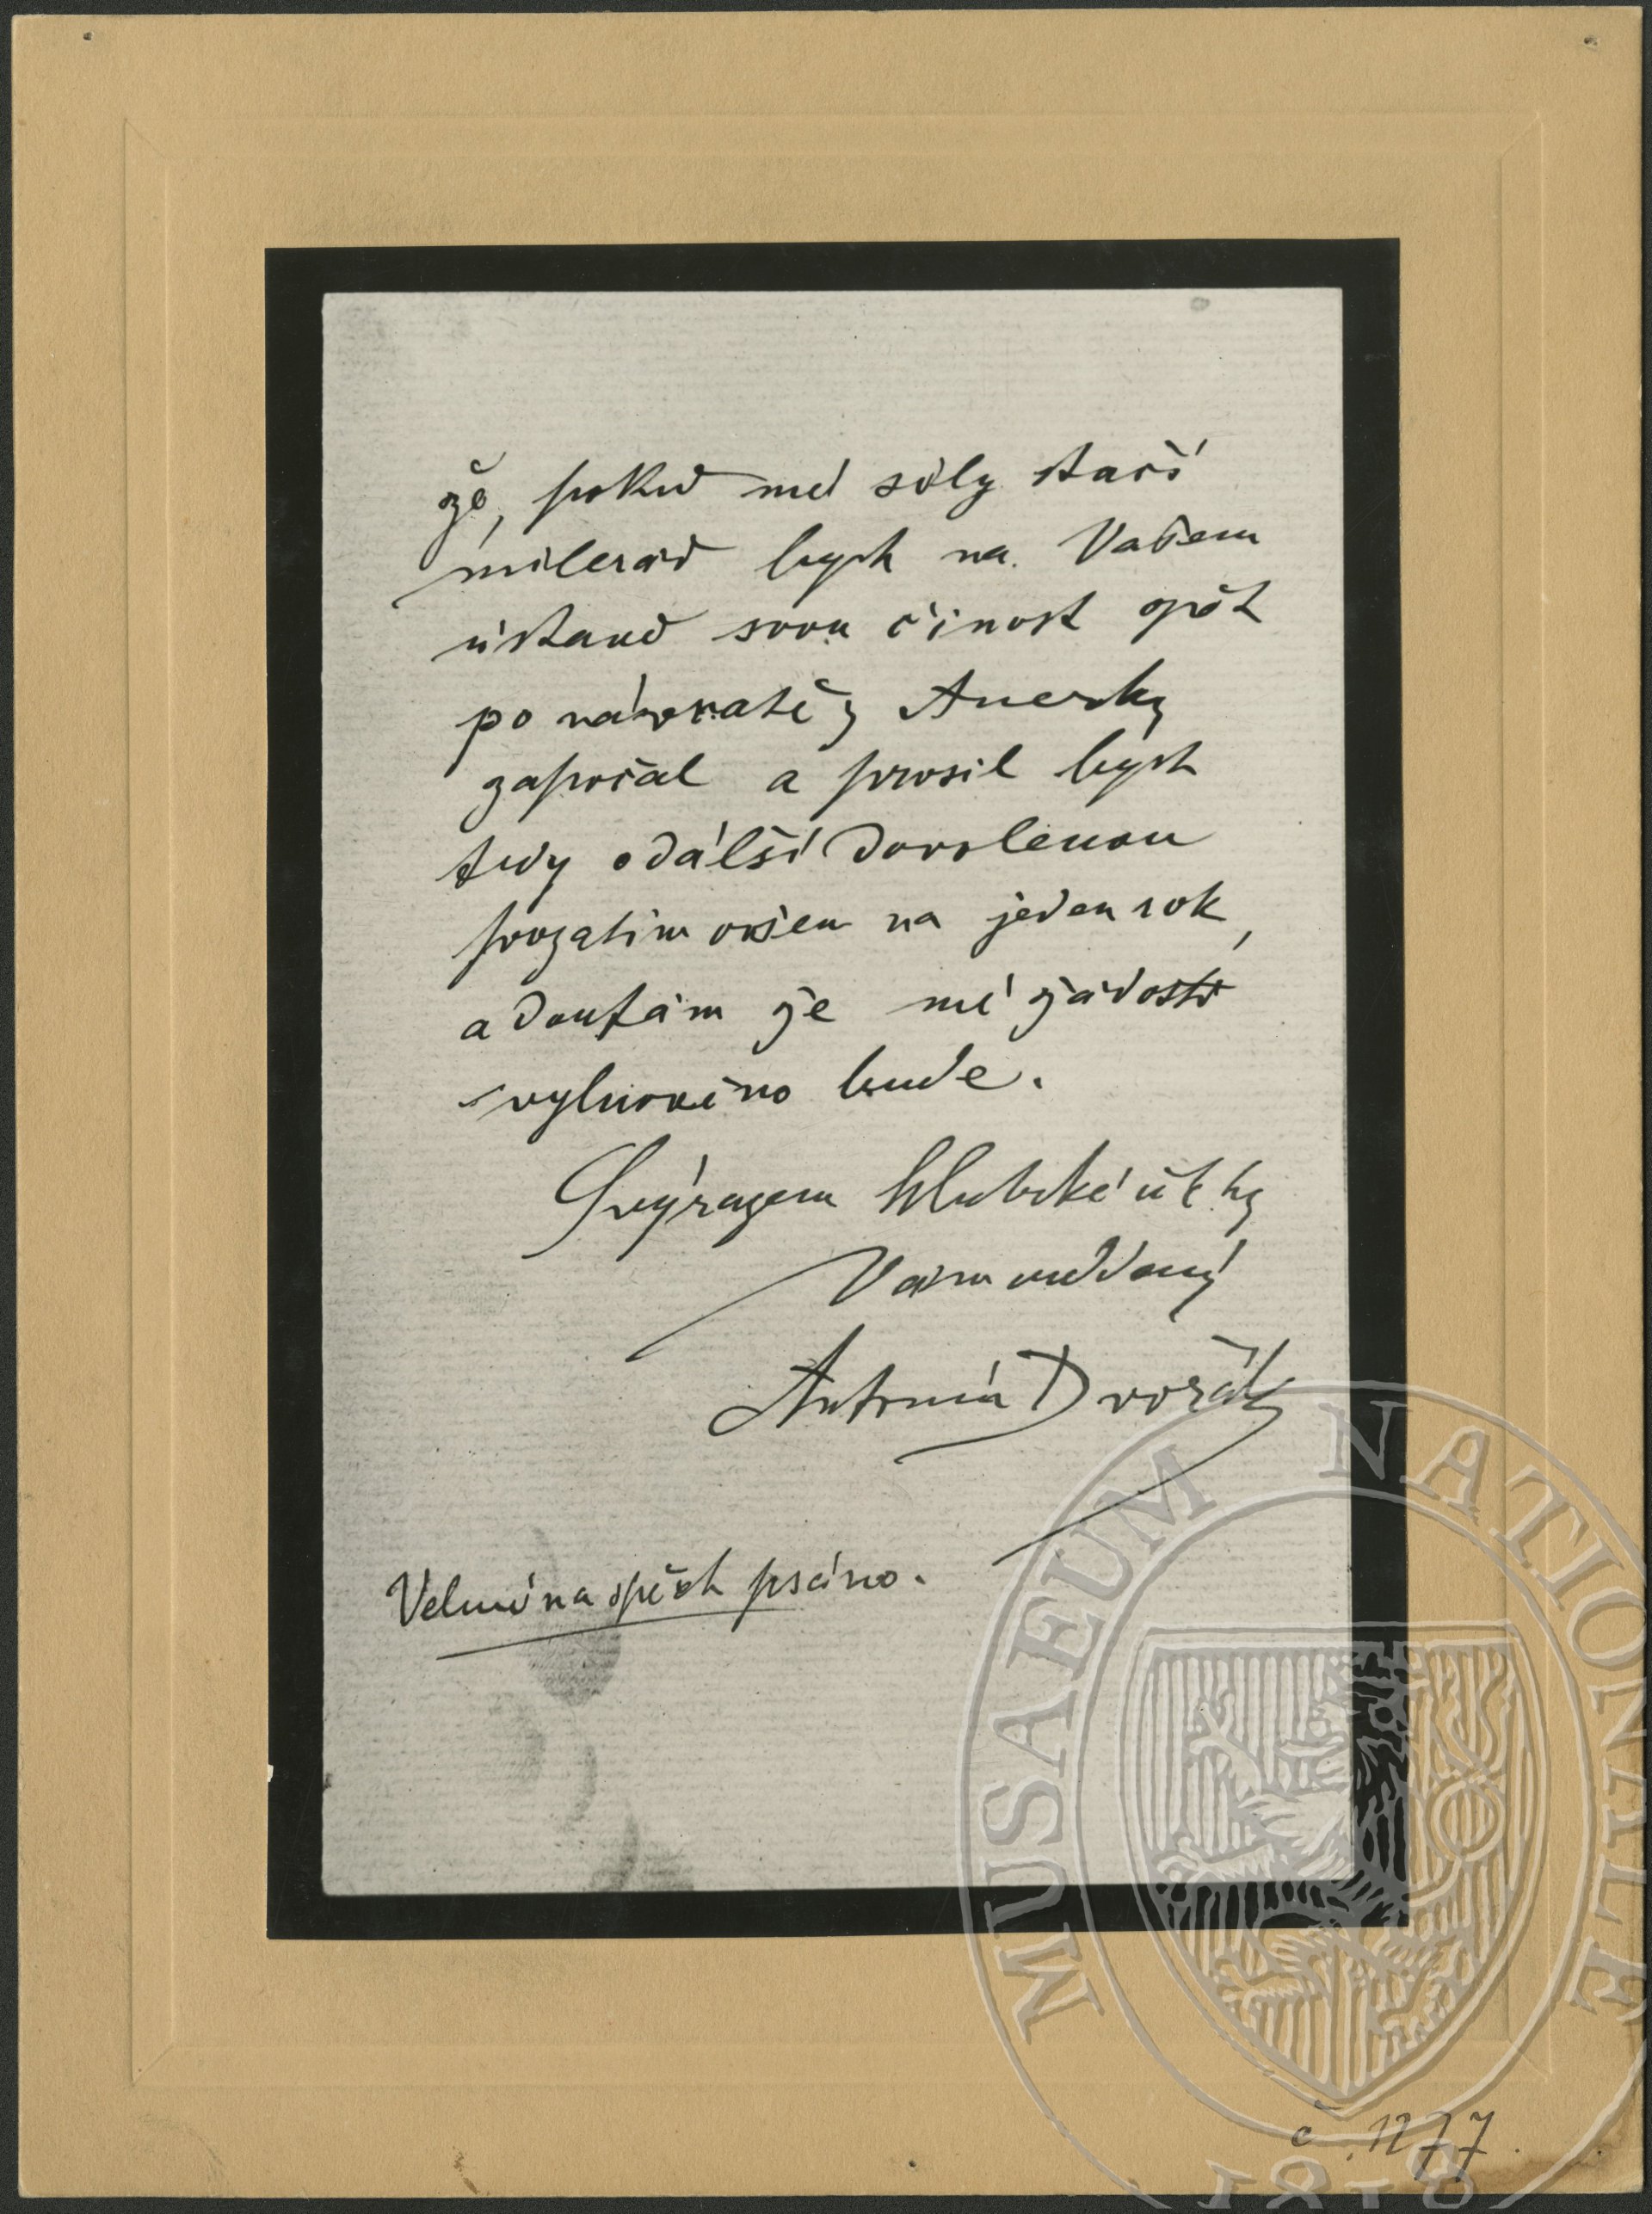 že, pokud mé síly stačí
milerád bych na Vašem
ústavě svou činost opět
po návratě z Ameriky
započal a prosil bych
tedy o další dovolenou
prozatím ovšem na jeden rok,
a doufám že mé žádosti
vyhověno bude.
S výrazem hluboké úcty
Vám oddaný
Antonín Dvořák
Velmi na spěch psáno.
MUSAEUM NATIONALE
1818
č. 1277.